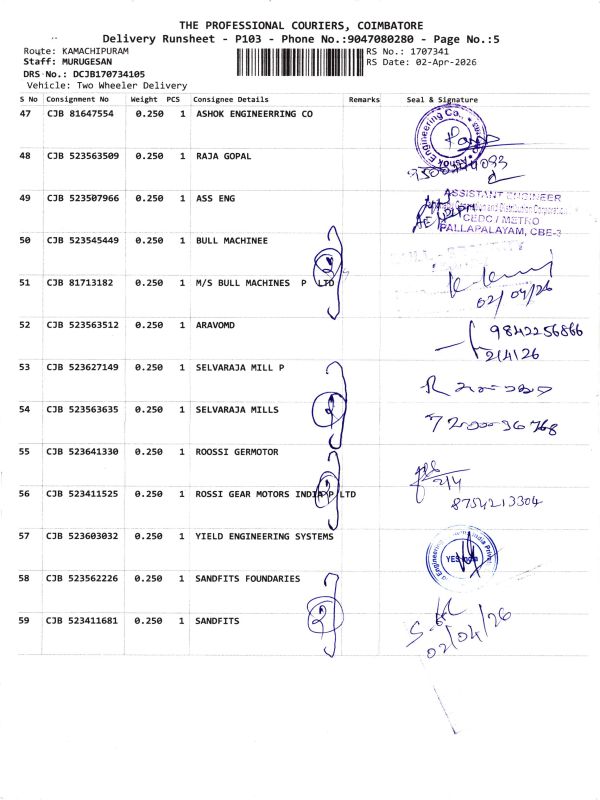 THE PROFESSIONAL COURIERS, COIMBATORE
Delivery Runsheet - P103 - Phone No.:9047080280 - Page No.:5
Route: KAMACHIPURAM
RS No.: 1707341
Staff: MURUGESAN
RS Date: 02-Apr-2026
DRS No.: DCJB170734105
Vehicle: Two Wheeler Delivery
S No Consignment No Weight PCS Consignee Details Remarks Seal & Signature
47 CJB 81647554 0.250 1 ASHOK ENGINEERRING CO
Engineering Co.,
48 CJB 523563509 0.250 1 RAJA GOPAL
49 CJB 523507966 0.250 1 ASS ENG
ASSISTANT ENGINEER
Distribution Corporation
CEDC / METRO
PALLAPALAYAM, CBE-3
50 CJB 523545449 0.250 1 BULL MACHINEE
51 CJB 81713182 0.250 1 M/S BULL MACHINES P LTD
2
02/04/26
52 CJB 523563512 0.250 1 ARAVOMD
9842256866
2/4/26
53 CJB 523627149 0.250 1 SELVARAJA MILL P
54 CJB 523563635 0.250 1 SELVARAJA MILLS
2
55 CJB 523641330 0.250 1 ROOSSI GERMOTOR
2/4
56 CJB 523411525 0.250 1 ROSSI GEAR MOTORS INDIA P LTD
2
8754213304
57 CJB 523603032 0.250 1 YIELD ENGINEERING SYSTEMS
YES
58 CJB 523562226 0.250 1 SANDFITS FOUNDARIES
59 CJB 523411681 0.250 1 SANDFITS
2
02/04/26